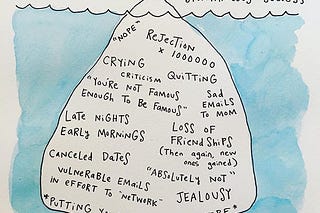 "NOPE" REJECTION
x 1000000
CRYING
CRITICISM QUITTING
"YOU'RE NOT FAMOUS
ENOUGH TO BE FAMOUS"
SAD
EMAILS
TO MOM
LATE NIGHTS
EARLY MORNINGS
LOSS OF
FRIENDSHIPS
(Then again, new
ones gained)
CANCELED DATES
VULNERABLE EMAILS
IN EFFORT TO "NETWORK"
"ABSOLUTELY NOT"
JEALOUSY
*PUTTING